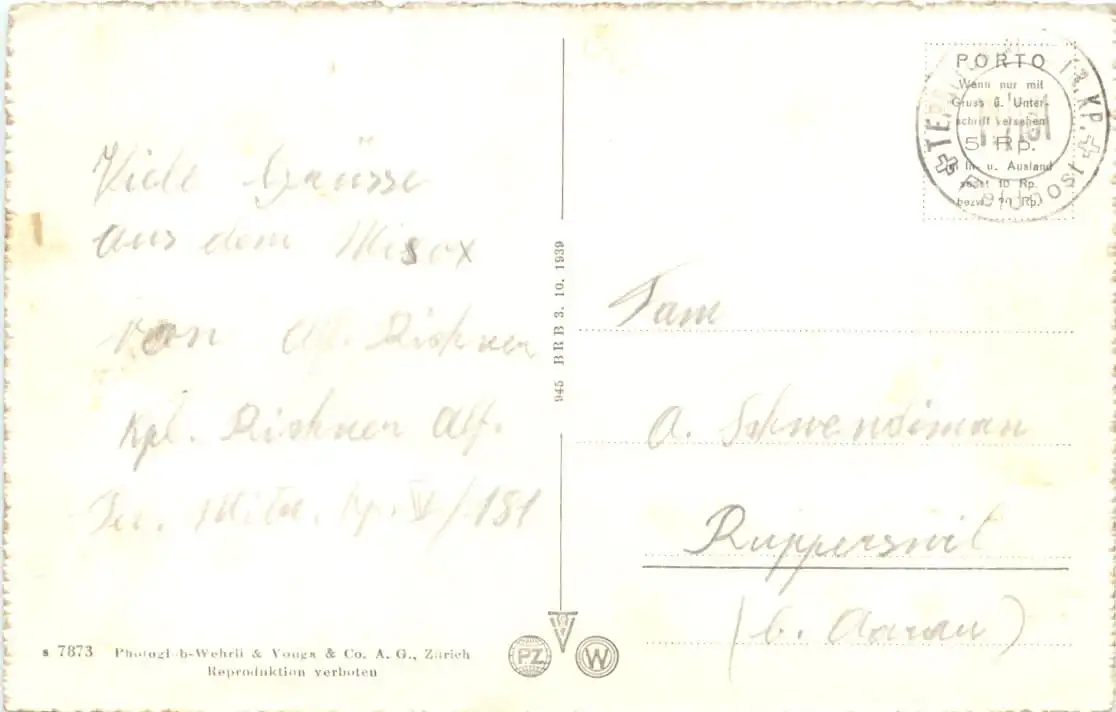 Viele Grüsse
aus dem Misox
von Alf. Rishner
Kpl. Rishner Alf.
Ter. Mitr. Kp. IV/181
s 7873 Photoglob-Wehrli & Vouga & Co. A. G., Zürich
Reproduktion verboten
945 BRB 3. 10. 1939
PZ
W
PORTO
Wenn nur mit
Gruss u. Unter-
schrift versehen
5 Rp.
in In- u. Ausland
sonst 10 Rp.
bezw. 20 Rp.
KP.
Feldpost
Fam
A. Schwendiman
Rupperswil
(b. Aarau)